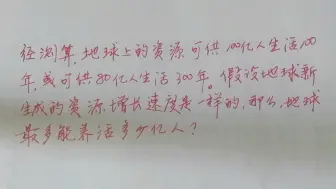 经测算,地球上的资源可供100亿人生活100
年,或可供80亿人生活300年。假设地球新
生成的资源增长速度是一样的,那么,地球
最多能养活多少亿人?